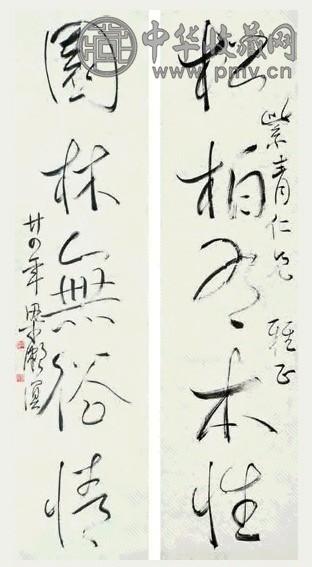 中华收藏网
www.pmv.cn
紫青仁兄 雅正
松柏有本性
園林無俗情
廿四年 梁漱溟